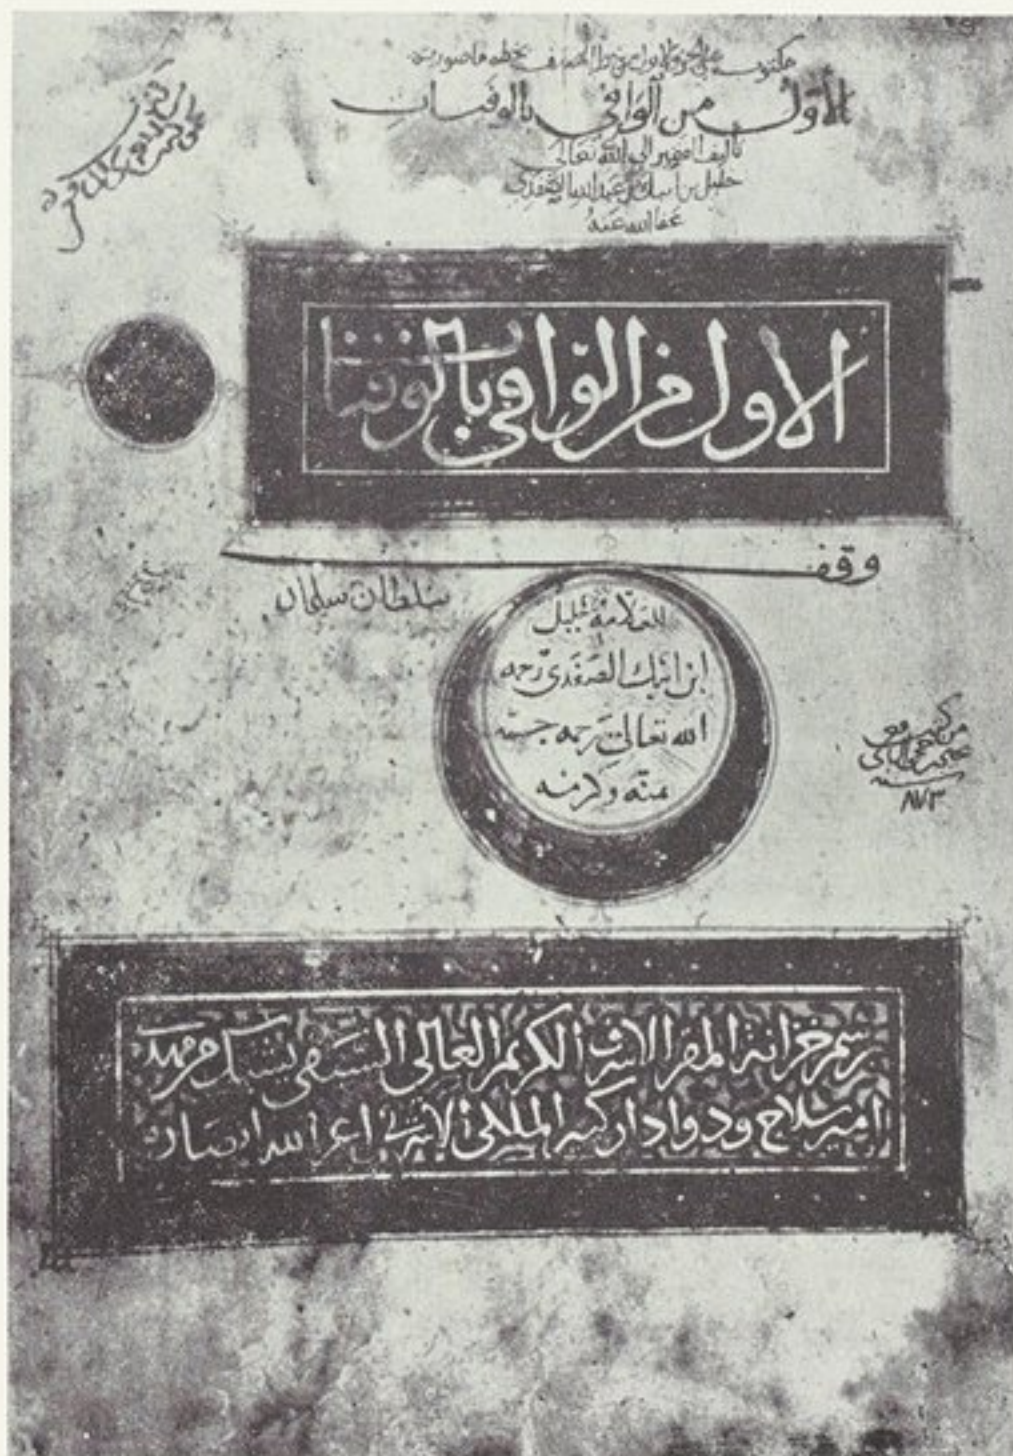 مكتوب على
بخطه ما صورته
الأول من الوافي بالوفيات
تأليف الفقير الى الله تعالى
خليل بن ايبك بن عبد الله الصفدي
عفا الله عنه
الاول من الوافي بالوفيات
وقف
سلطان سليمان
للعلامه خليل
ابن ايبك الصفدي رحمه
الله تعالى رحمه
بمنه وكرمه
من كتب
سنه
٨٧٣
برسم خزانة المقر الاشرف الكريم العالي السيفي يشبك من مهدي
امير سلاح ودوادار كبير الملكي الاشرفي اعز الله انصاره